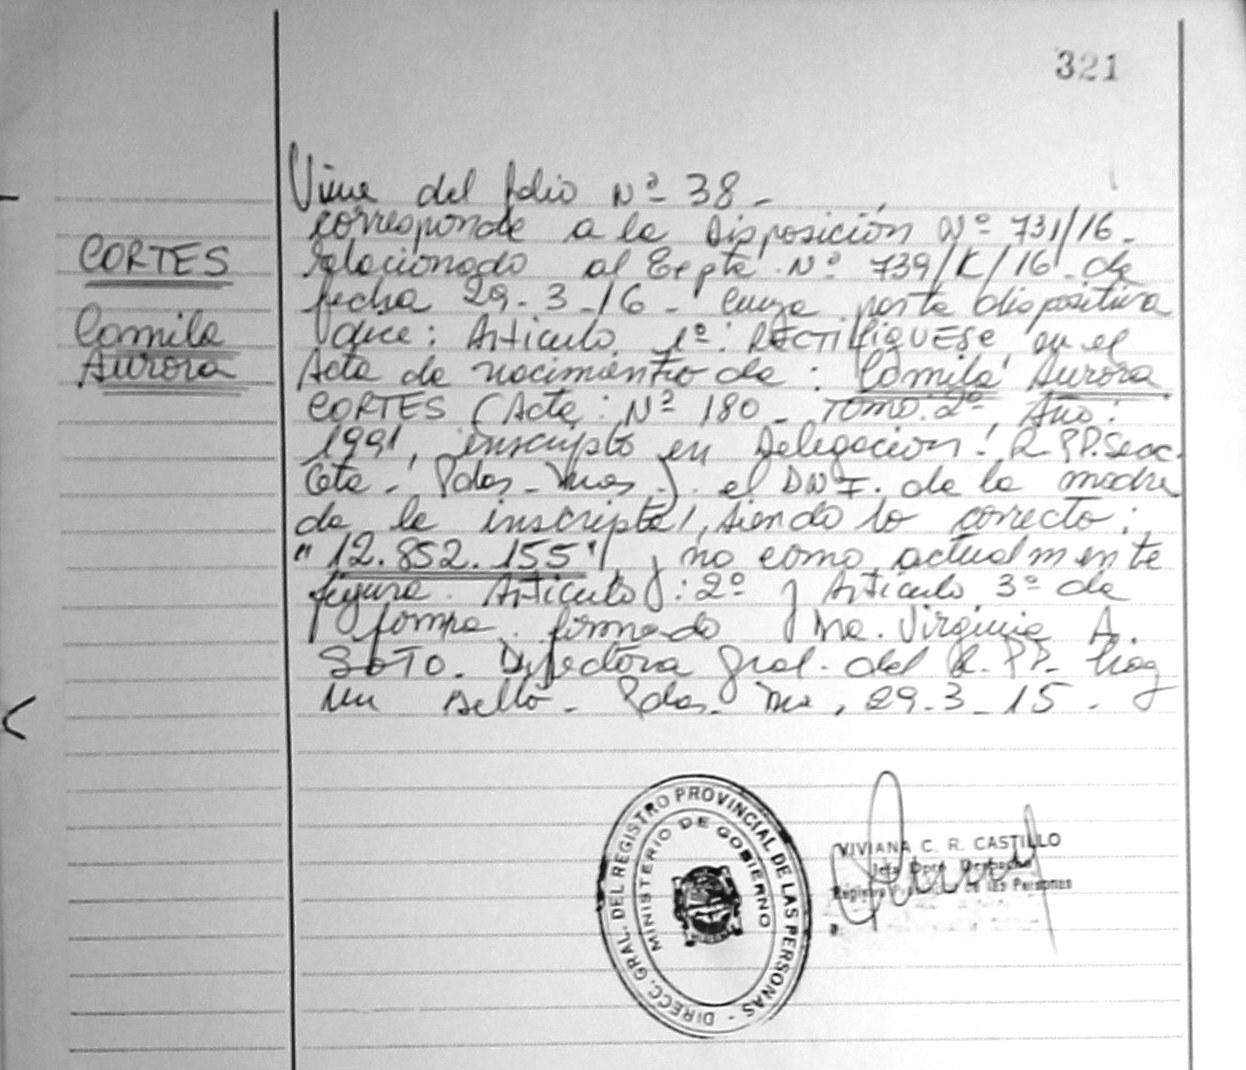 321
Viene del folio Nº 38 -
corresponde a la Disposición Nº 731/16 -
CORTES
relacionado al Expte. Nº 739/K/16 de
fecha 29-3-16 - cuya parte dispositiva
Camila
dice: Artículo 1º: RECTIFIQUESE en el
Aurora
Acta de nacimiento de: Camila Aurora
CORTES (Acta: Nº 180 - Tomo: 2º, Año:
1991, inscripto en Delegación: R.PP. Secc.
Cta - Pdas - Mnes). el DNI. de la madre
de la inscripta, siendo lo correcto:
"12.852.155", no como actualmente
figura. Artículo: 2º y Artículo 3º de
forma. firmado Virginia A.
SOTO. Directora Gral. del R.PP. hay
un sello - Pdas. Mes, 29-3-15.
DIRECC. GRAL. DEL REGISTRO PROVINCIAL DE LAS PERSONAS -
MINISTERIO DE GOBIERNO
VIVIANA C. R. CASTILLO
Jefa Dpto. Despacho
Registro Provincial de las Personas